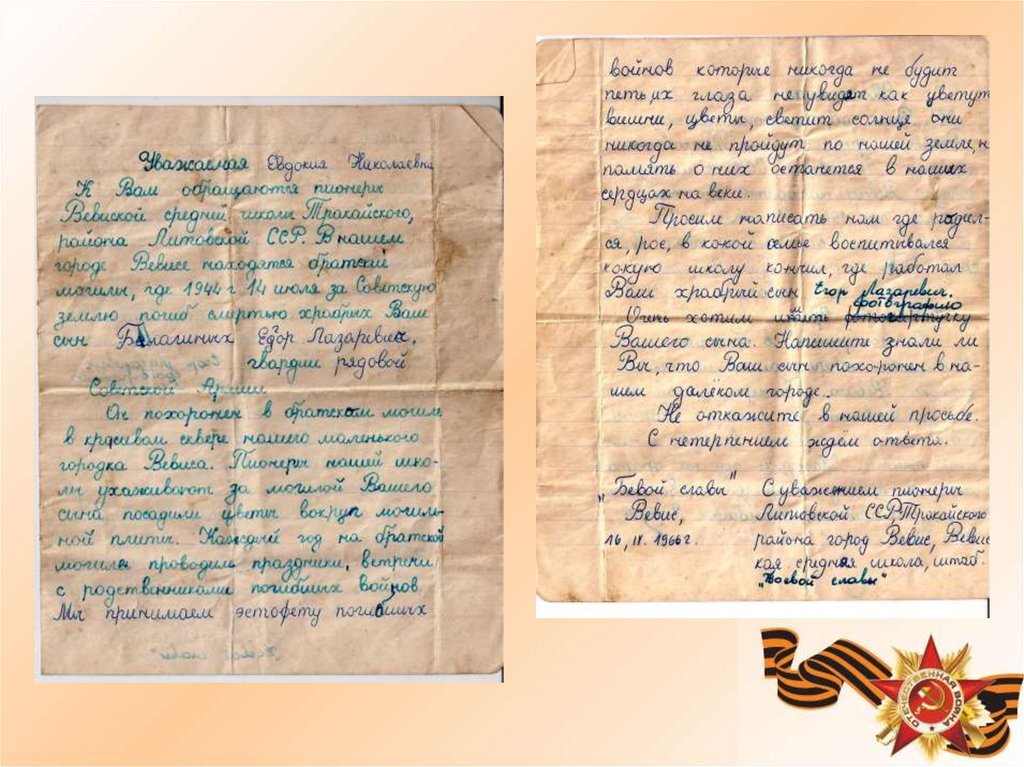 Уважаемая Евдокия Николаевна
К Вам обращаются пионеры
Вевиской средней школы Тракайского,
района Литовской ССР. В нашем
городе Вевисе находятся братский
могилы, где 1944 г 14 июля за Советскую
землю погиб смертью храбрых Ваш
сын Балагиных Егор Лазаревич.
гвардии рядовой
Советской Армии
Он похоронен в братском могиле
в красивом сквере нашего маленького
городка Вевиса. Пионеры нашей шко-
лы ухаживают за могилой Вашего
сына посадили цветы вокруг могиль-
ной плиты. Каждый год на братской
могиле проводим праздники, встречи
с родственниками погибших войнов
Мы принимаем эстофету погибших
"Боевой славы"
войнов которые никогда не будит
петь их глаза не увидят как цветут
вишни, цветы, светит солнце они
никогда не пройдут по нашей земле, н
память о них останется в наших
сердцах на веки.
Просим написать нам где родил-
ся, рос, в кокой семье воспитывался
кокую школу кончил, где работал
Ваш храбрый сын Егор Лазаревич.
фотографию
Очень хотим иметь
Вашего сына. Напишите знали ли
Вы, что Ваш сын похоронен в на-
шем далёком городе.
Не откажите в нашей просьбе.
С нетерпением ждём ответа.
"Бевой славы"
Вевис,
16, IV. 1966 г.
С уважением пионеры
Литовской ССР, Тракайского
района город Вевис, Вевис
кая средняя школа, штаб.
"Боевой славы"
ОТЕЧЕСТВЕННАЯ ВОЙНА